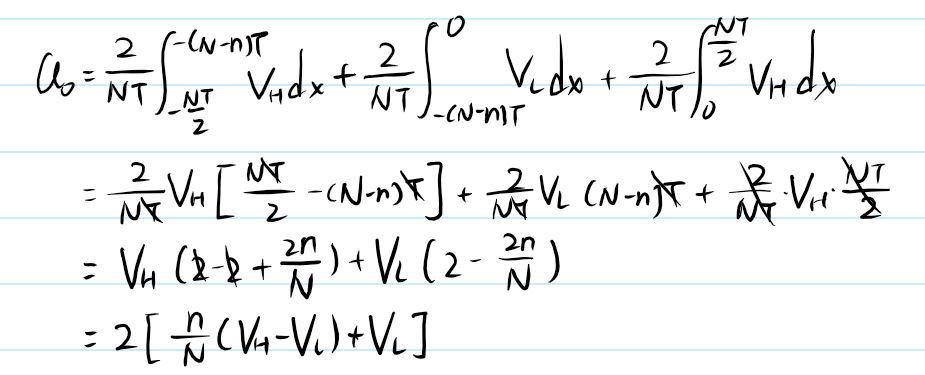 a₀ = 2/NT ∫_{-NT/2}^{-(N-n)T} V_H dx + 2/NT ∫_{-(N-n)T}^{0} V_L dx + 2/NT ∫_{0}^{NT/2} V_H dx
= 2/NT V_H [NT/2 - (N-n)T] + 2/NT V_L (N-n)T + 2/NT · V_H · NT/2
= V_H (2-2 + 2n/N) + V_L (2 - 2n/N)
= 2[n/N (V_H - V_L) + V_L]